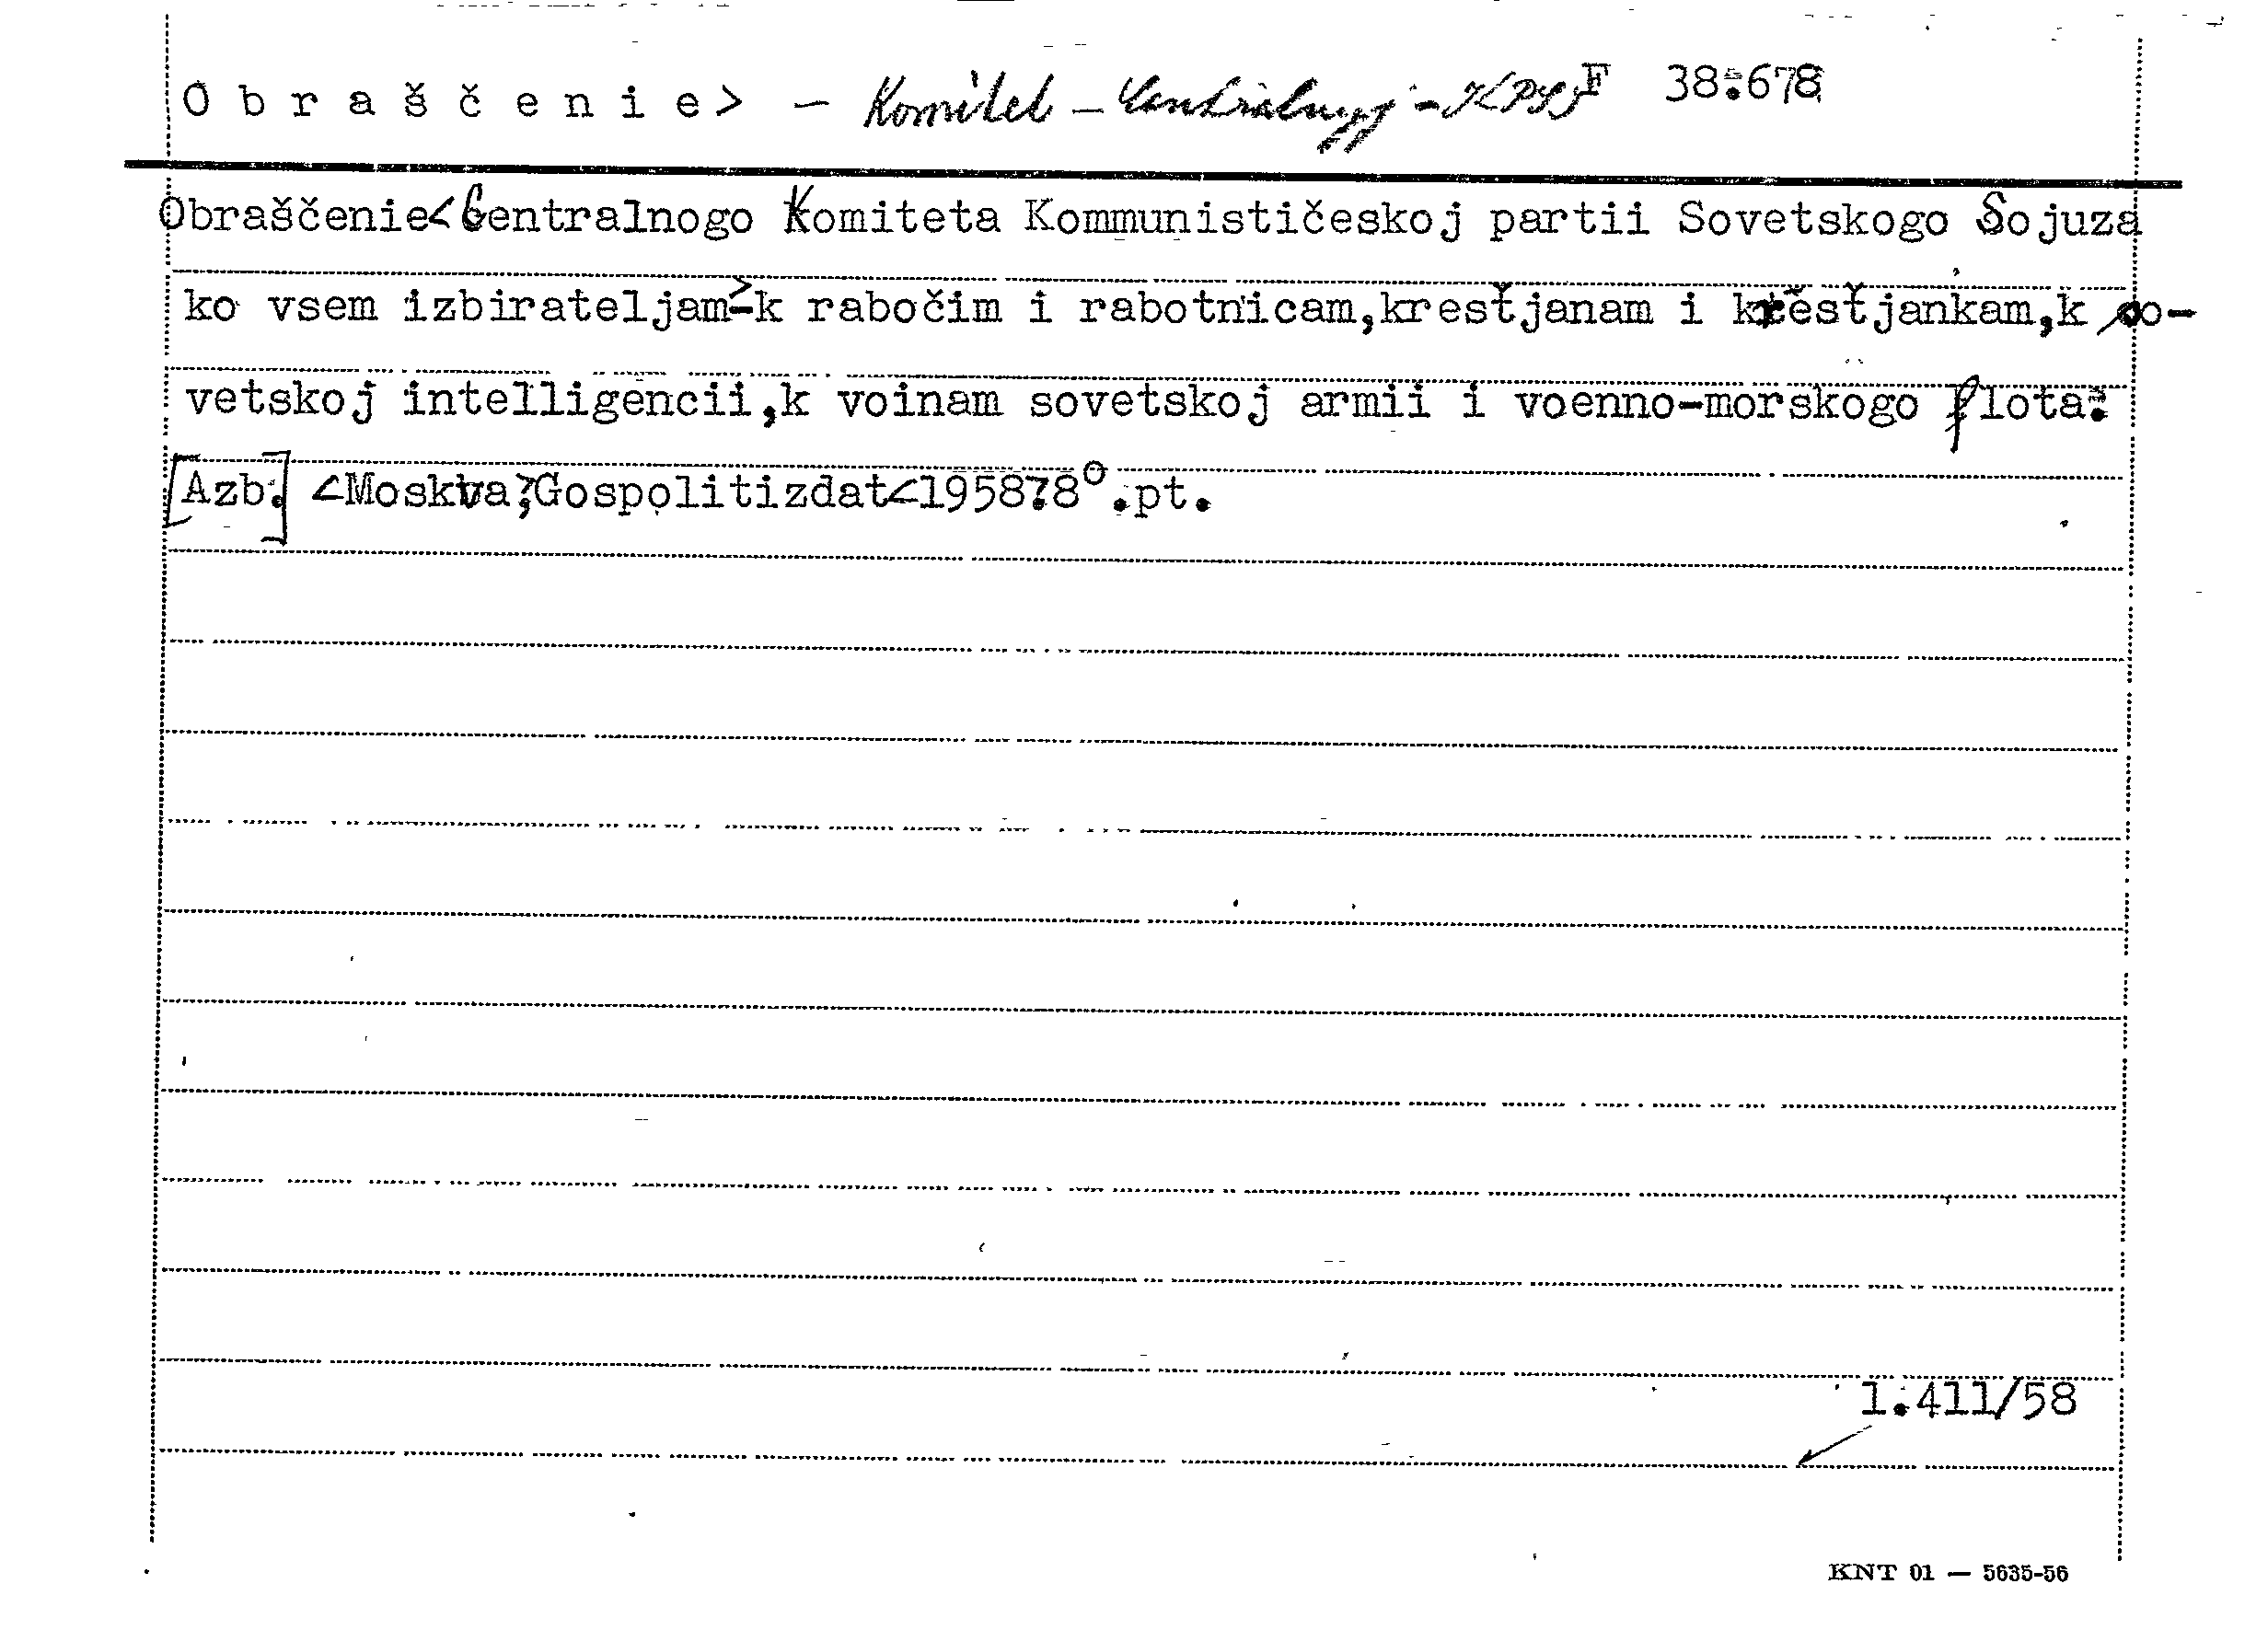 Obraščenie> - Komitet - Centralnyj - KPSS F 38.678
Obraščenie<Centralnogo Komiteta Kommunističeskoj partii Sovetskogo Sojuza
ko vsem izbirateljam>-k rabočim i rabotnicam,krest̆janam i krest̆jankam,k so-
vetskoj intelligencii,k voinam sovetskoj armii i voenno-morskogo flota.
[Azb.] <Moskva>,Gospolitizdat<1958>.8°.pt.
1.411/58
KNT 01 — 5635-56